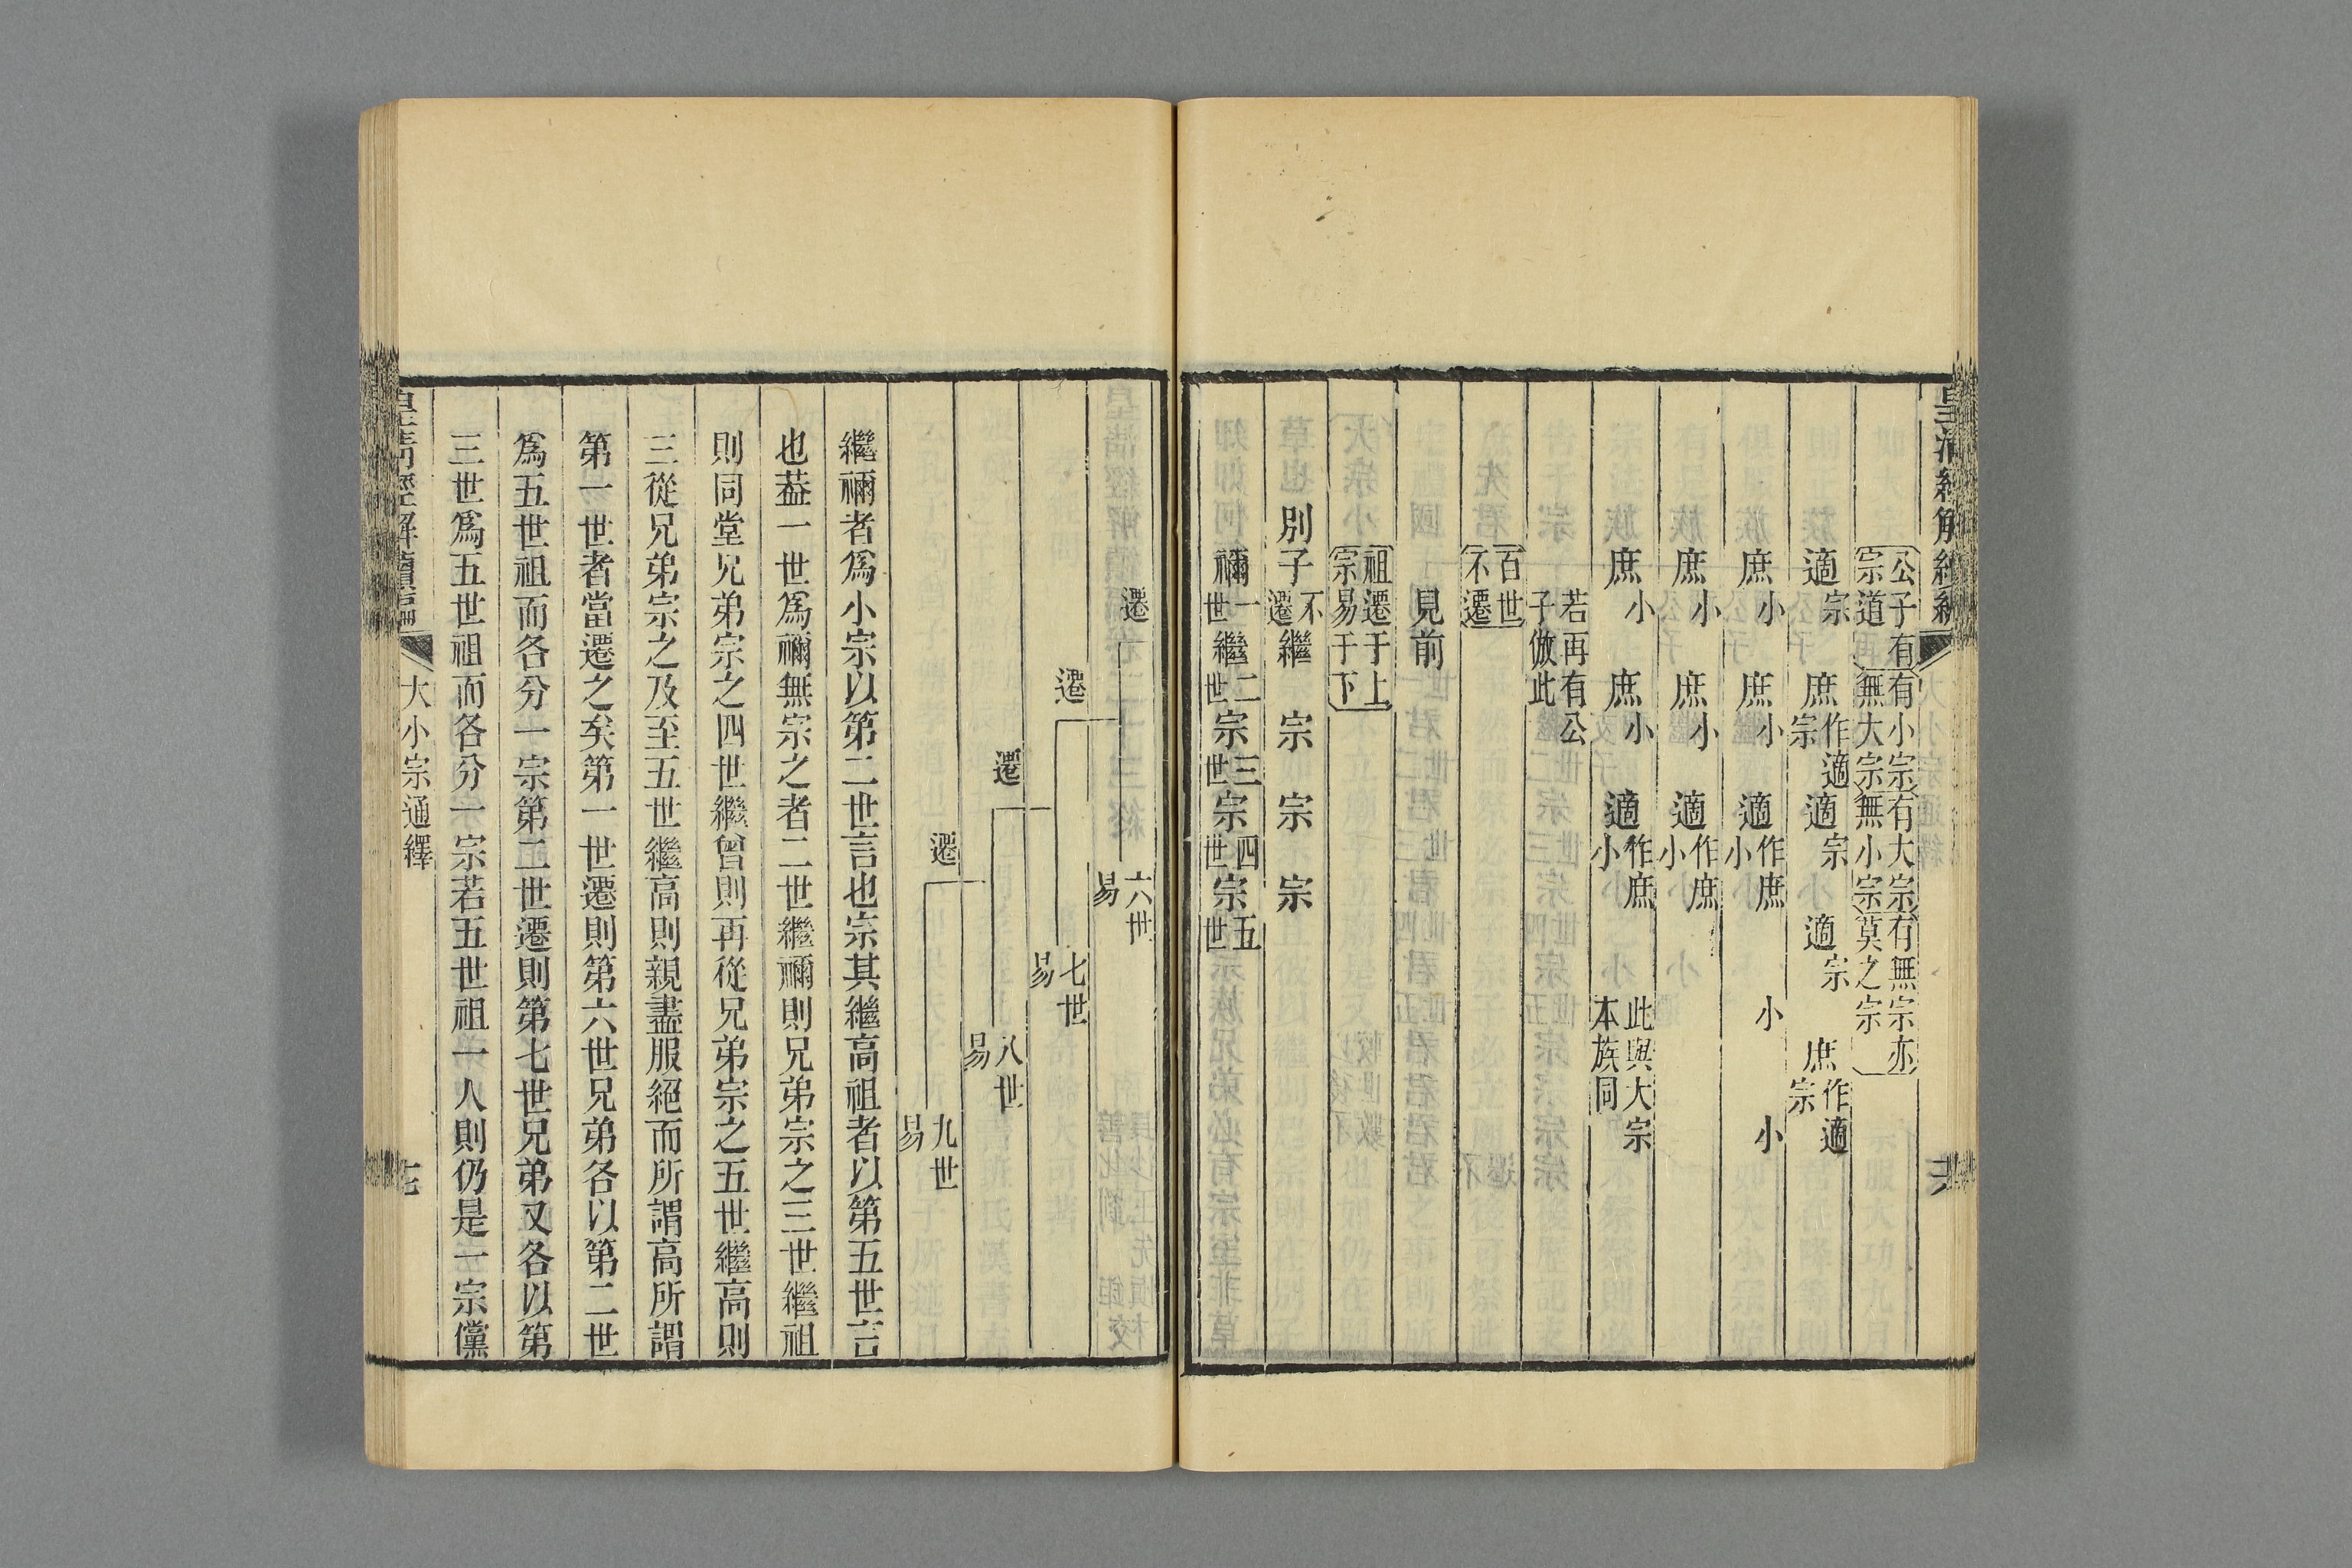 皇清經解續編
公子有宗道
有小宗無大宗
有大宗無小宗
有無宗亦莫之宗
適宗 庶作適宗 適宗 適宗 庶作適宗
庶小 庶小 適作庶小 小 小
庶小 庶小 適作庶小
庶小 庶小 適作庶小 此與大宗本族同
若再有公子倣此
百世不遷
見前
祖遷于上宗易于下
別子不遷繼 宗 宗 宗
禰一世繼二世宗三世宗四世宗五世
遷 六世易
遷 七世易
遷 八世易
遷 九世易
繼禰者爲小宗以第二世言也宗其繼高祖者以第五世言
也葢一世爲禰無宗之者二世繼禰則兄弟宗之三世繼祖
則同堂兄弟宗之四世繼曾則再從兄弟宗之五世繼高則
三從兄弟宗之及至五世繼高則親盡服絕而所謂高所謂
第一世者當遷之矣第一世遷則第六世兄弟各以第二世
爲五世祖而各分一宗第二世遷則第七世兄弟又各以第
三世爲五世祖而各分一宗若五世祖一人則仍是一宗儻
皇清經解續編
大小宗通繹